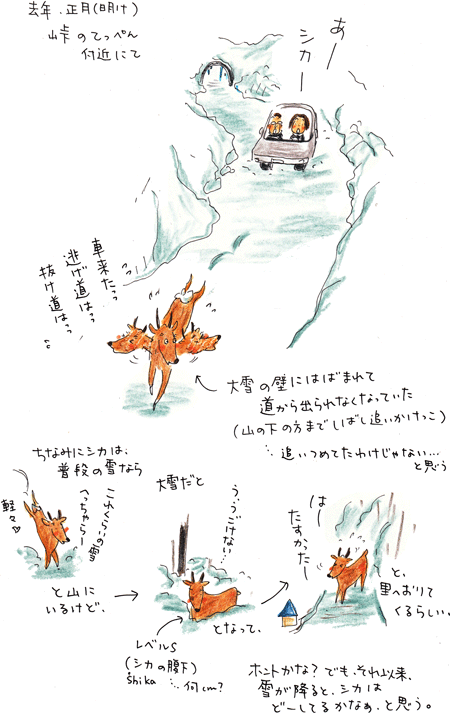 去年.正月(明け)
峠のてっぺん
付近にて
あー
シカー
車来たっっ
逃げ道はっ
抜け道はっ
大雪の壁にはばまれて
道から出られなくなっていた
(山の下の方までしばし追いかけっこ)
追いつめてたわけじゃない…
と思う
ちなみにシカは、
普段の雪なら
これくらいの雪
へっちゃらー
軽々
と山に
いるけど、
大雪だと
う、うごけない…
レベルS
(シカの腰下)
Shika
何cm?
となって、
はー
たすかったー
と、
里へおりて
くるらしい。
ホントかな?でも、それ以来、
雪が降ると、シカは
どーしてるかなぁ、と思う。